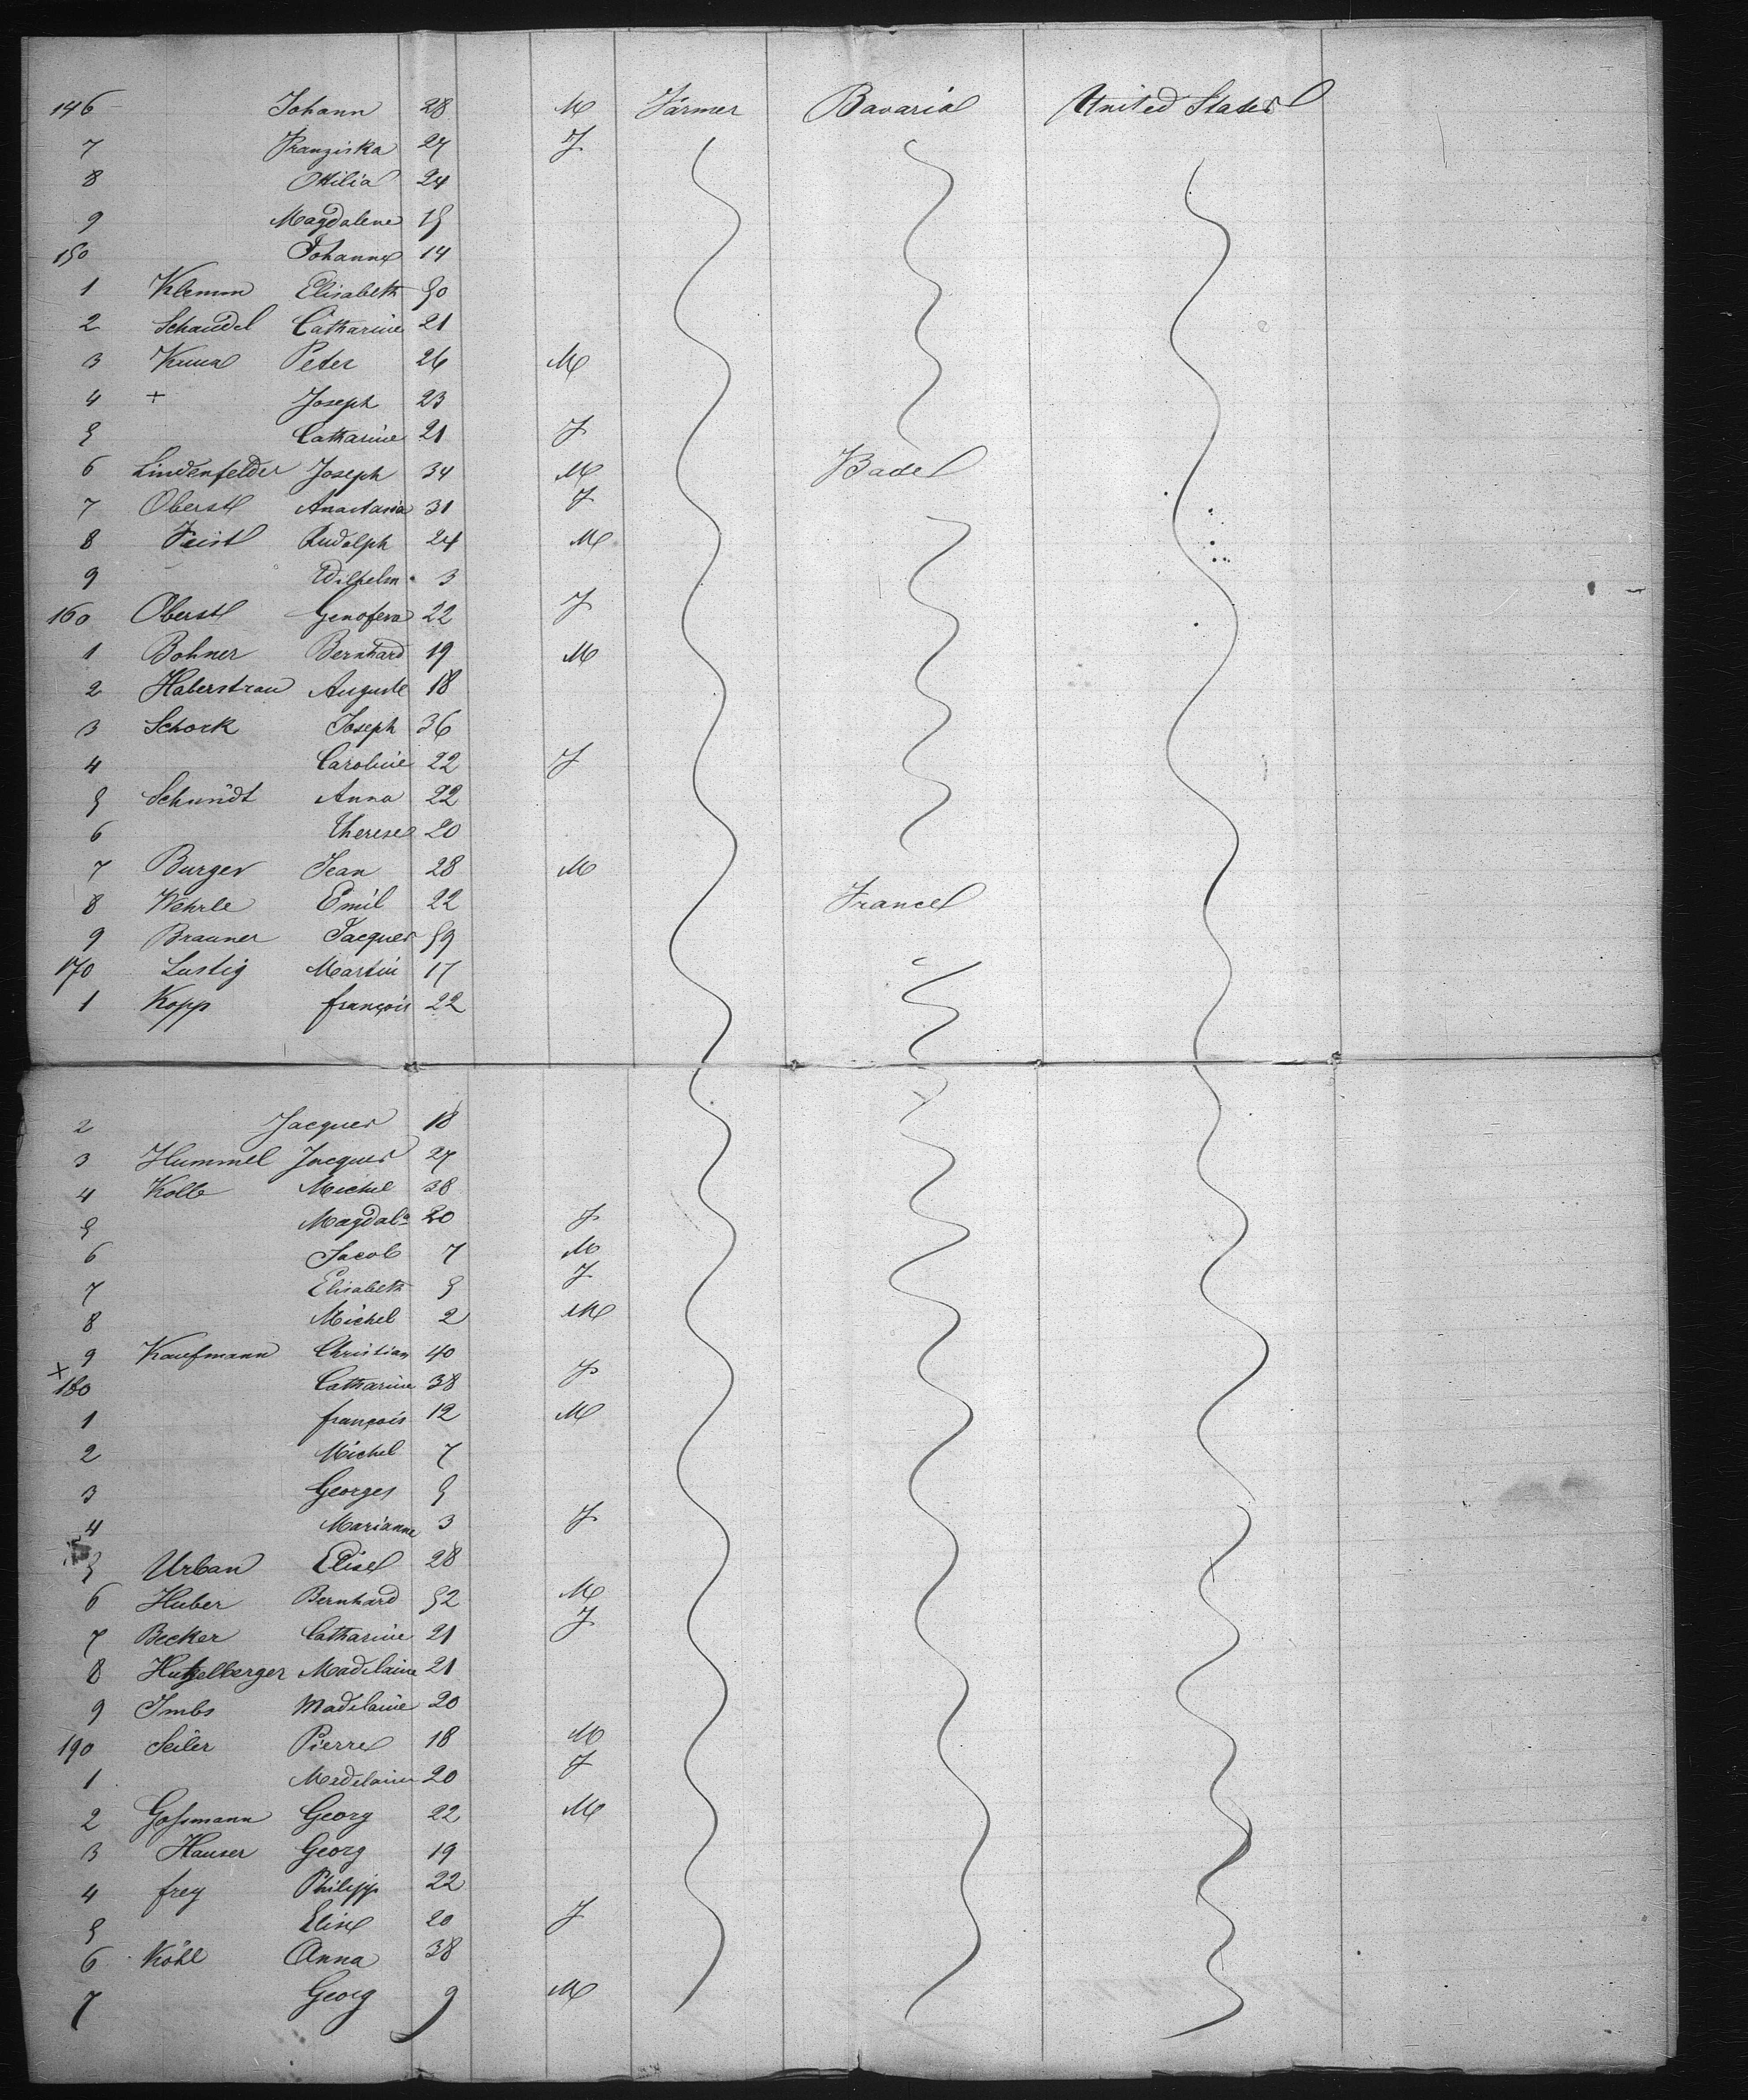 146 Johann 28 M Farmer Bavaria United States
7 Franziska 27 F
8 Ottilia 24
9 Magdalene 15
150 Johanne 14
1 Klemm Elisabeth 50
2 Schaudel Catharine 21
3 Peter 26 M
4 + Joseph 23
5 Catharine 21 F
6 Lindenfelder Joseph 34 M Bade
7 Oberst Anastasia 31 F
8 Feist Rudolph 24 M
9 Wilhelm 3
160 Oberst Genofeva 22 F
1 Bohner Bernhard 19 M
2 Haberstrau Auguste 18
3 Schork Joseph 36
4 Caroline 22 F
5 Schmidt Anna 22
6 Therese 20
7 Burger Jean 28 M
8 Wehrle Emil 22 France
9 Brauner Jacques 59
170 Lustig Martin 17
1 Kopp françois 22
2 Jacques 18
3 Hummel Jacques 27
4 Kolb Michel 38
5 Magdala 20 F
6 Jacob 7 M
7 Elisabeth 5 F
8 Michel 2 M
9 Kaufmann Christian 40
+ 180 Catharine 38 F
1 françois 12 M
2 Michel 7
3 Georges 5
4 Marianne 3 F
5 Urban Elise 28
6 Huber Bernhard 52 M
7 Becker Catharine 21 F
8 Hutzelberger Madelaine 21
9 Imbs Madelaine 20
190 Seiler Pierre 18 M
1 Madelaine 20 F
2 Gossmann Georg 22 M
3 Hauser Georg 19
4 frey Philipp 22
5 Elise 20 F
6 Köhl Anna 38
7 Georg 9 M